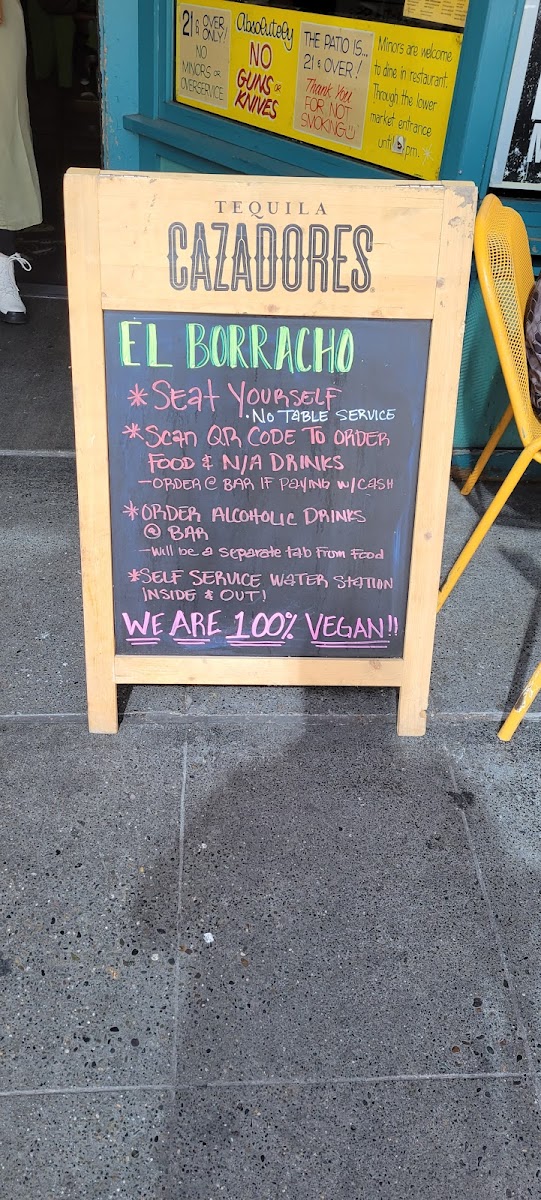 21 & OVER
ONLY!
NO
MINORS OR
OVERSERVICE
Absolutely
NO
GUNS OR
KNIVES
THE PATIO IS...
21 & OVER!
Thank You
FOR NOT
SMOKING
Minors are welcome
to dine in restaurant.
Through the lower
market entrance
until pm.
TEQUILA
CAZADORES
EL BORRACHO
* Seat Yourself
• No Table Service
* Scan QR Code To Order
Food & N/A Drinks
- Order @ Bar if paying w/cash
* Order Alcoholic Drinks
@ Bar
- Will be a separate tab From Food
* Self Service Water Station
Inside & Out!
WE ARE 100% VEGAN!!